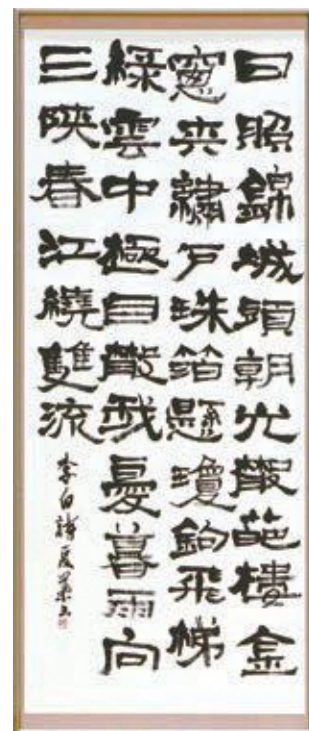 日照錦城頭朝光散葩樓金
窻夾繡戶珠箔懸瓊鉤飛梯
綠雲中極目散我憂暮雨向
三陝春江繞雙流
李白詩